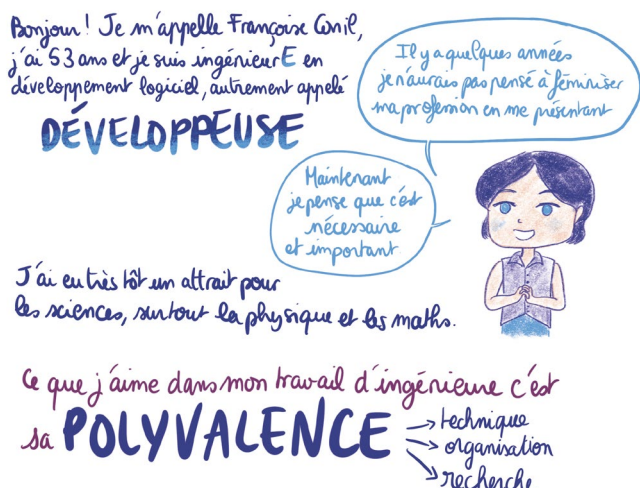 Bonjour! Je m'appelle Françoise Conil,
j'ai 53 ans et je suis ingénieurE en
développement logiciel, autrement appelé
DÉVELOPPEUSE
Il y a quelques années
je n'aurais pas pensé à féminiser
ma profession en me présentant
Maintenant
je pense que c'est
nécessaire
et important
J'ai eu très tôt un attrait pour
les sciences, surtout la physique et les maths.
Ce que j'aime dans mon travail d'ingénieure c'est
sa POLYVALENCE
→ technique
→ organisation
→ recherche